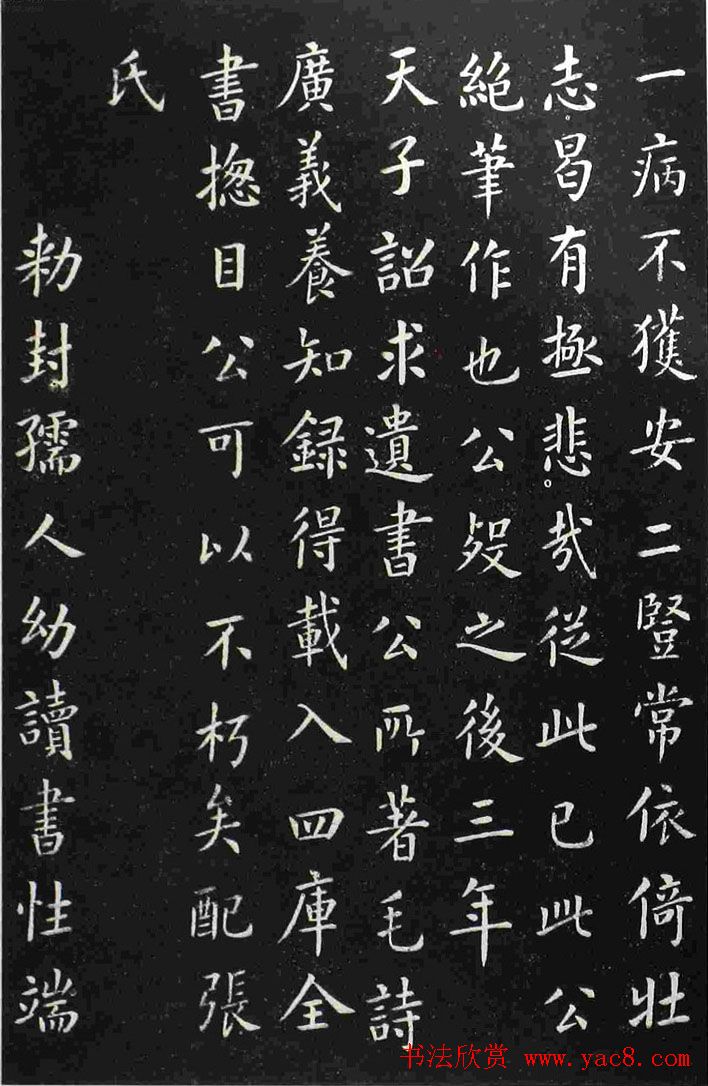 一病不獲安二豎常依倚壯
志曷有極悲哉從此已此公
絕筆作也公歿之後三年
天子詔求遺書公所著毛詩
廣義養知録得載入四庫全
書揔目公可以不朽矣配張
氏
勅封孺人幼讀書性端
书法欣赏 www.yac8.com